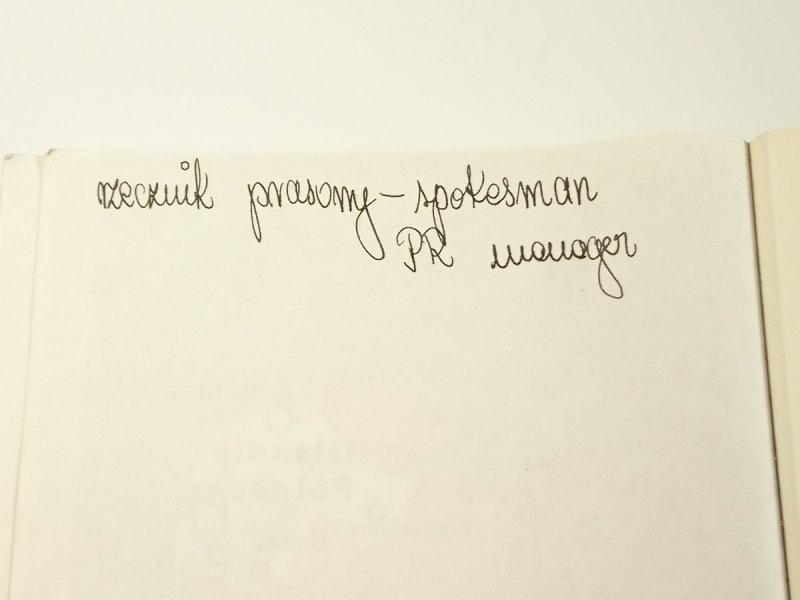 rzecznik prasowy - spokesman
PR manager